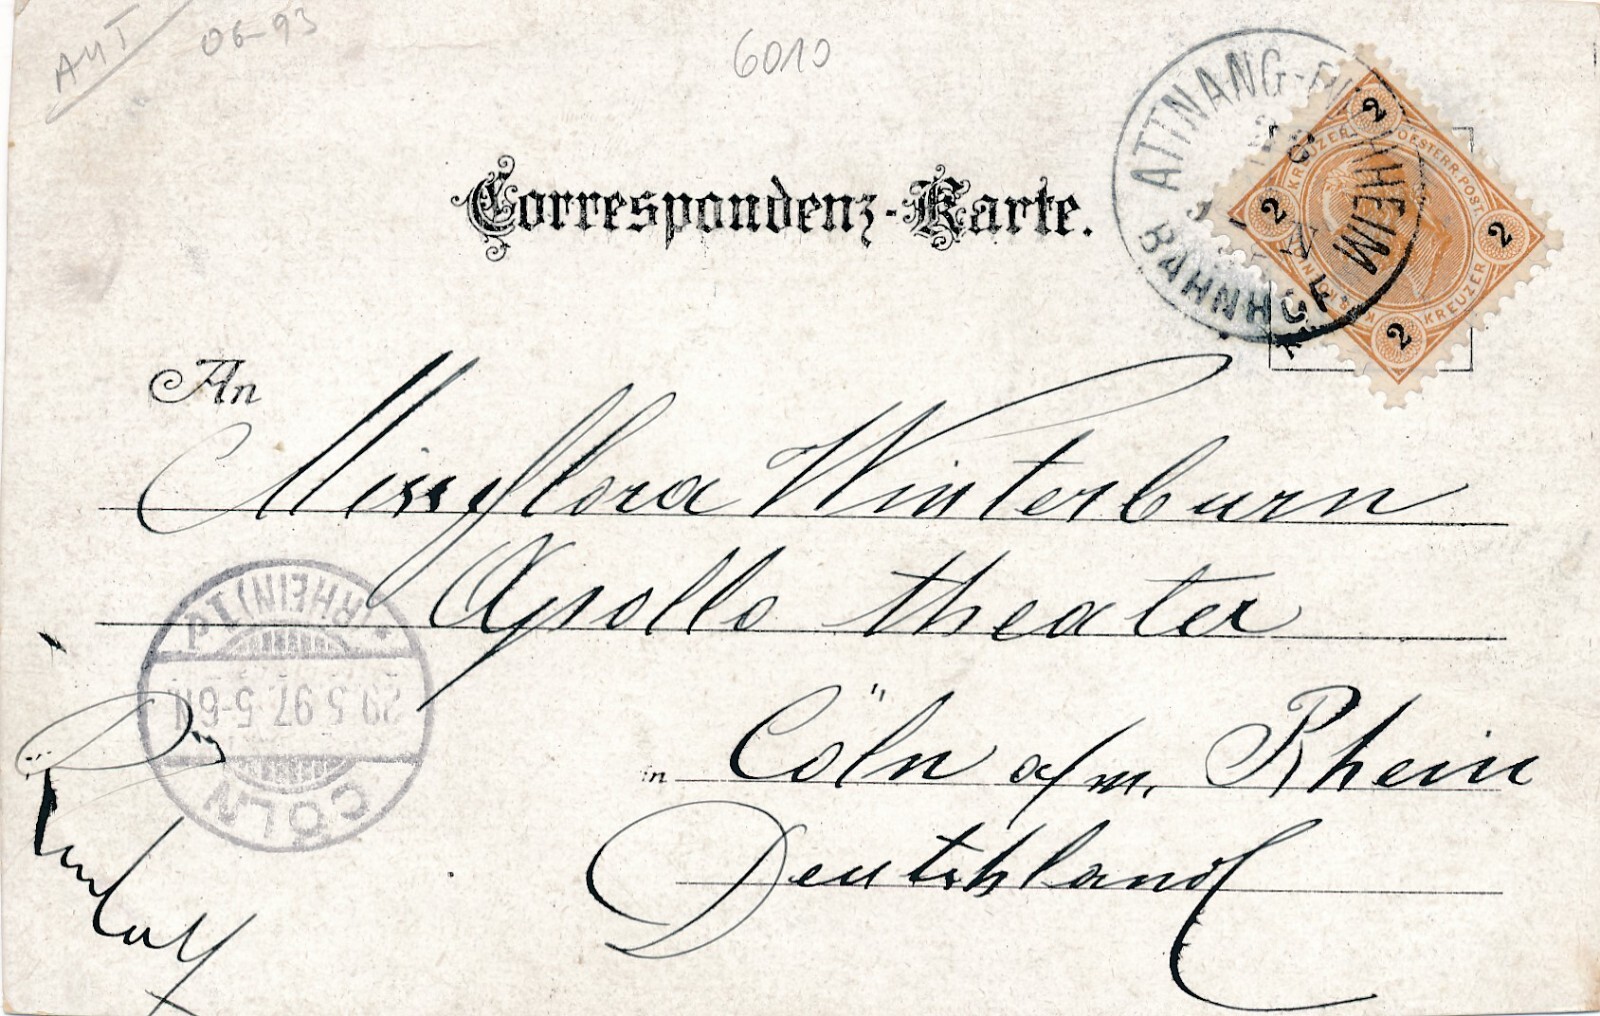 AUT
06-93
6010
ATTNANG-PU HEIM
BAHNHOF
28
2
2
2
2
KREUZER
OESTERR. POST.
KREUZER
Correspondenz-Karte.
An
Miss Flora Winterburn
Apollo theater
in Cöln a/m. Rhein
Deutschland
CÖLN
29 5 97. 5-6N
* (RHEIN) 1 d
Rudolf